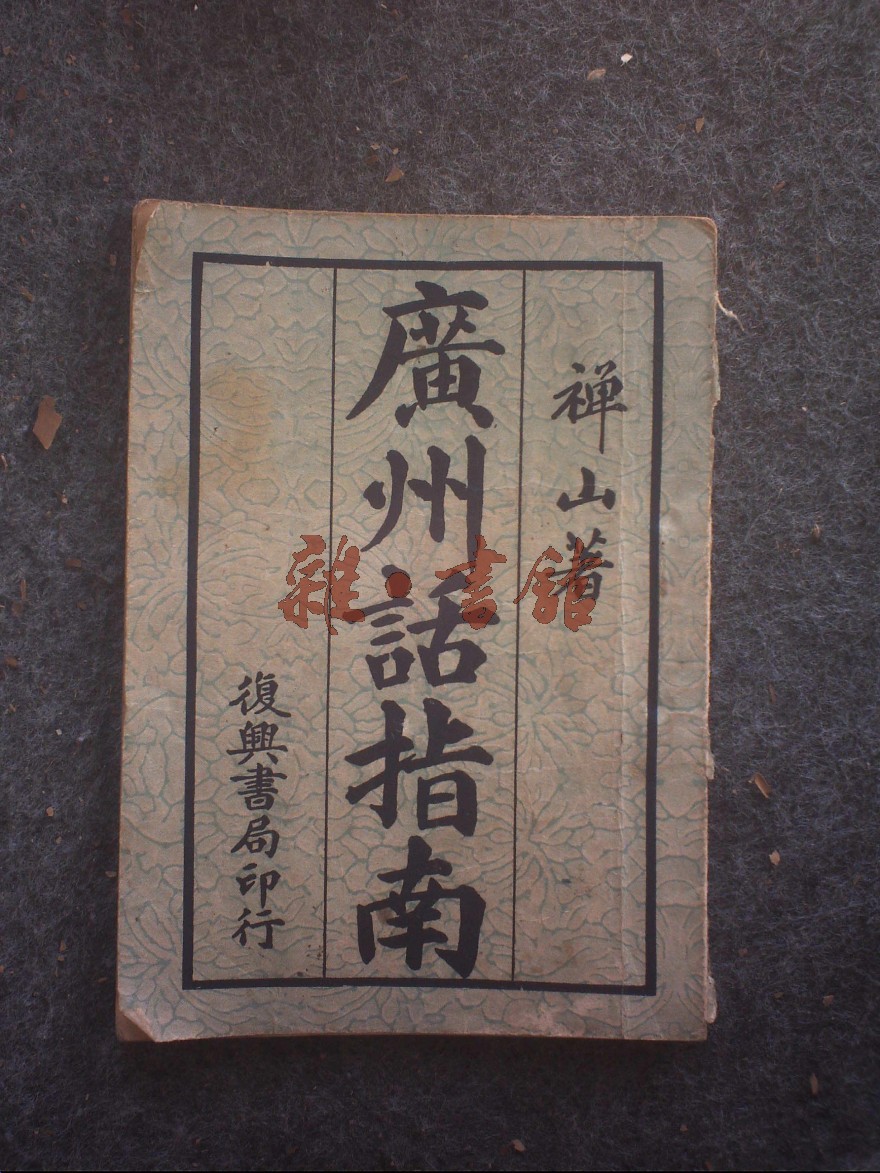 禅山著
廣州話指南
復興書局印行
雜·書館